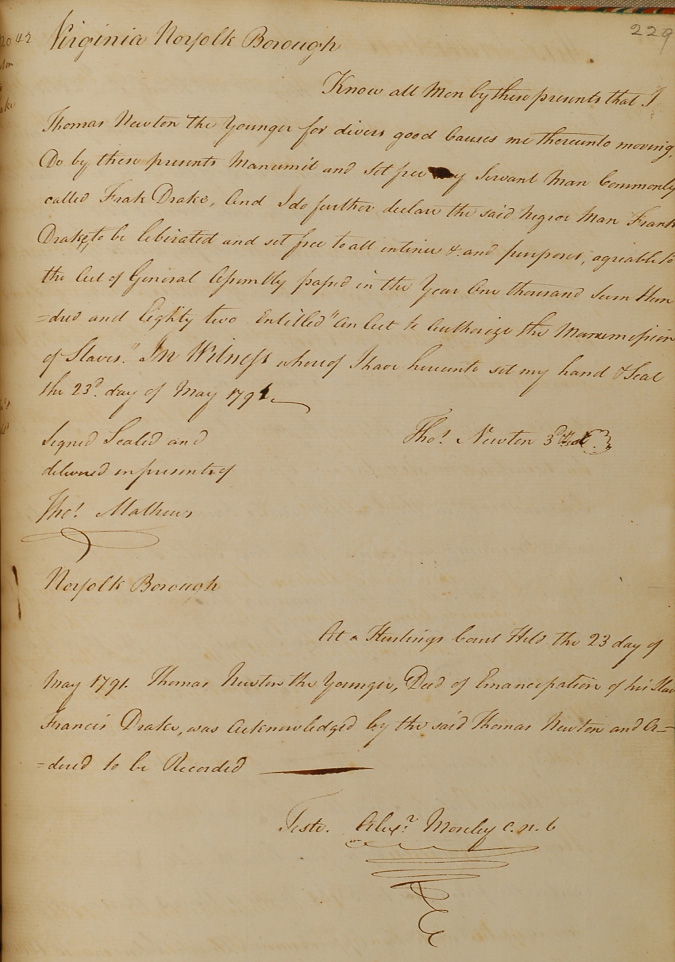 229
Virginia Norfolk Borough
Know all Men by these presents that I
Thomas Newton the Younger for divers good Causes me thereunto moving,
Do by these presents Manumit and set free my Servant Man Commonly
called Frank Drake, And I do further declare the said Negroe Man Frank
Drake, to be liberated and set free to all intents & and purposes, agriable to
the Act of General Assembly passed in the Year One thousand seven Hun
=dred and Eighty two Entitled "An Act to Authorize the Manumission
of Slaves." In Witness whereof I have hereunto set my hand & Seal
the 23d. day of May 1791.
Signed Sealed and
Thos. Newton
delivered in presents of
Thos. Mathews
Norfolk Borough
At a Hustings Court Held the 23 day of
May 1791. Thomas Newton the Younger, Deed of Emancipation of his Slave
Francis Drake, was Acknowledged by the said Thomas Newton and Or=
=dered to be Recorded
Teste. Alexr. Moseley C. n. b